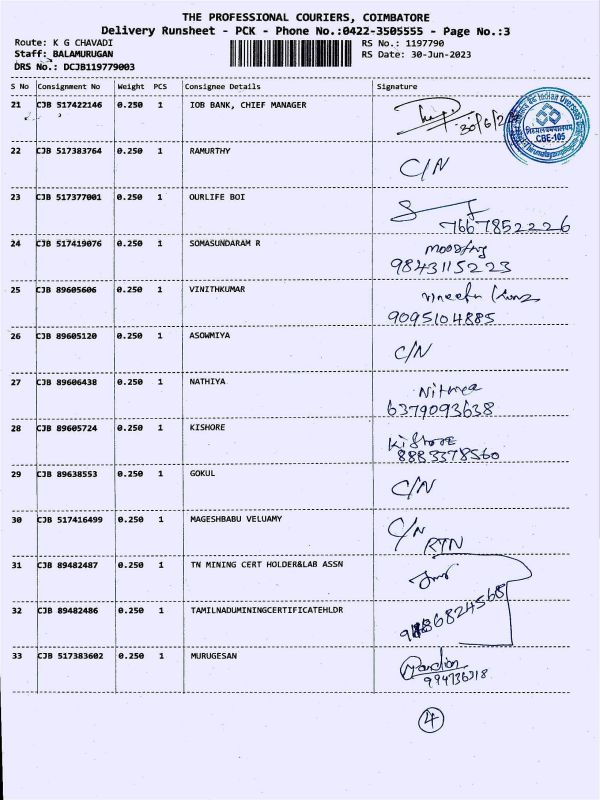 THE PROFESSIONAL COURIERS, COIMBATORE
Delivery Runsheet - PCK - Phone No.:0422-3505555 - Page No.:3
Route: K G CHAVADI RS No.: 1197790
Staff: BALAMURUGAN RS Date: 30-Jun-2023
DRS No.: DCJB119779003
S No Consignment No Weight PCS Consignee Details Signature
21 CJB 517422146 0.250 1 IOB BANK, CHIEF MANAGER
CBE-105
22 CJB 517383764 0.250 1 RAMURTHY C/N
23 CJB 517377001 0.250 1 OURLIFE BOI
7667852226
24 CJB 517419076 0.250 1 SOMASUNDARAM R
9843115223
25 CJB 89605606 0.250 1 VINITHKUMAR
9095104885
26 CJB 89605120 0.250 1 ASOWMIYA C/N
27 CJB 89606438 0.250 1 NATHIYA
6379093638
28 CJB 89605724 0.250 1 KISHORE Kishore
8883378560
29 CJB 89638553 0.250 1 GOKUL C/N
30 CJB 517416499 0.250 1 MAGESHBABU VELUAMY C/N
RTN
31 CJB 89482487 0.250 1 TN MINING CERT HOLDER&LAB ASSN
32 CJB 89482486 0.250 1 TAMILNADUMININGCERTIFICATEHLDR
33 CJB 517383602 0.250 1 MURUGESAN
994736318
4